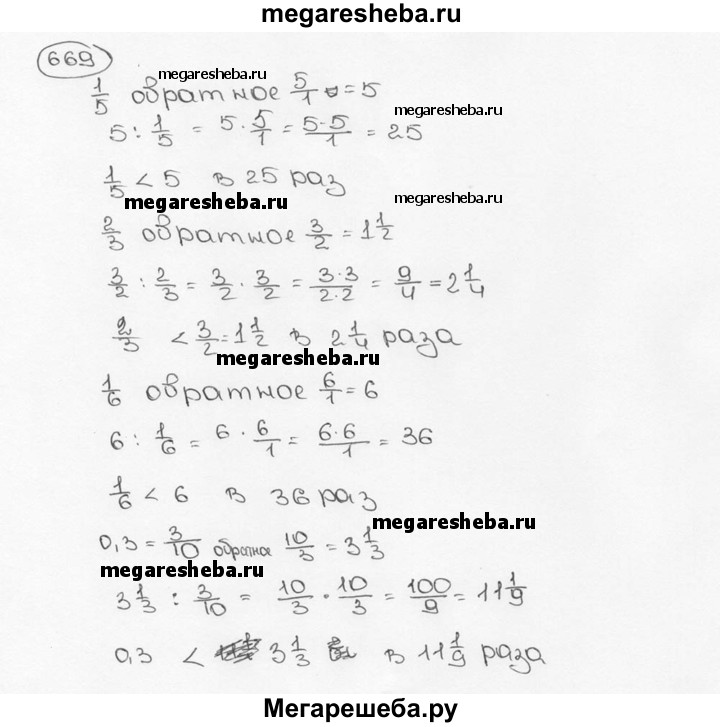 megaresheba.ru
669
megaresheba.ru
1/5 обратное 5/1 = 5
5 : 1/5 = 5 · 5/1 = 5·5/1 = 25
1/5 < 5 в 25 раз
megaresheba.ru megaresheba.ru
2/3 обратное 3/2 = 1 1/2
3/2 : 2/3 = 3/2 · 3/2 = 3·3/2·2 = 9/4 = 2 1/4
2/3 < 3/2 = 1 1/2 в 2 1/4 раза
megaresheba.ru
1/6 обратное 6/1 = 6
6 : 1/6 = 6 · 6/1 = 6·6/1 = 36
1/6 < 6 в 36 раз
megaresheba.ru
0,3 = 3/10 обратное 10/3 = 3 1/3
megaresheba.ru
3 1/3 : 3/10 = 10/3 · 10/3 = 100/9 = 11 1/9
0,3 < 3 1/3 в 11 1/9 раза
Мегарешеба.ру